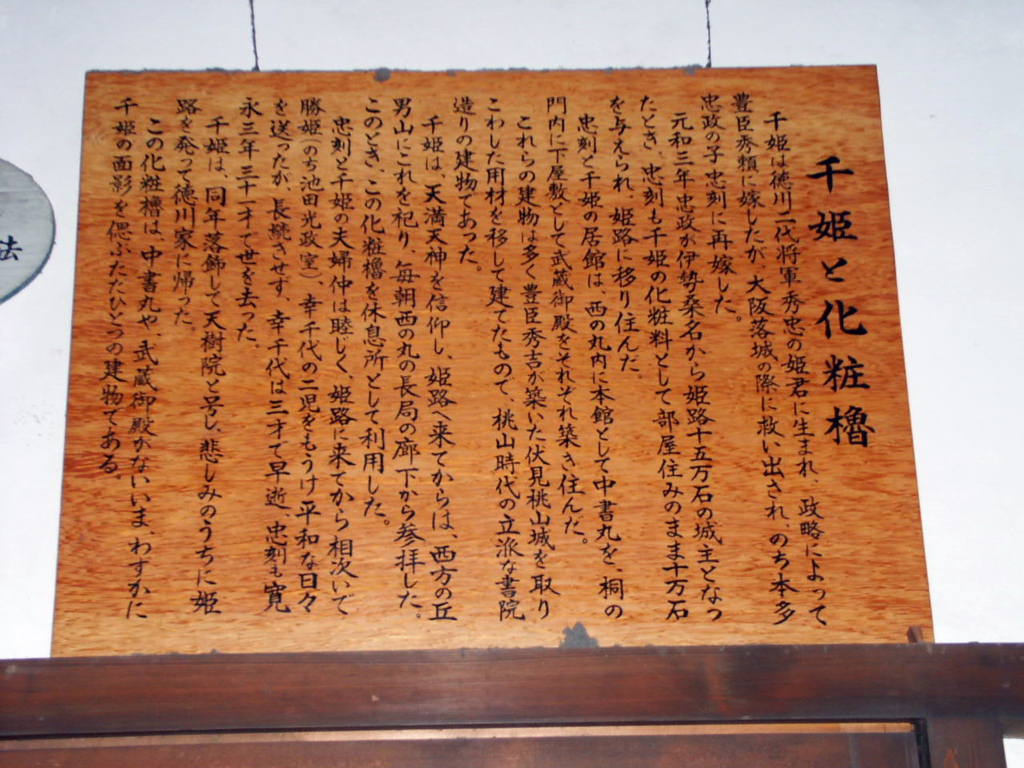 千姫と化粧櫓
千姫は徳川二代将軍秀忠の姫君に生まれ、政略によって
豊臣秀頼に嫁したが、大阪落城の際に救い出され、のち本多
忠政の子忠刻に再嫁した。
元和三年忠政が伊勢桑名から姫路十五万石の城主となっ
たとき、忠刻も千姫の化粧料として部屋住みのまま十万石
を与えられ、姫路に移り住んだ。
忠刻と千姫の居館は、西の丸内に本館として中書丸を、桐の
門内に下屋敷として武蔵御殿をそれぞれ築き住んだ。
これらの建物は多く豊臣秀吉が築いた伏見桃山城を取り
こわした用材を移して建てたもので、桃山時代の立派な書院
造りの建物であった。
千姫は、天満天神を信仰し、姫路へ来てからは、西方の丘
男山にこれを祀り、毎朝西の丸の長局の廊下から参拝した。
このとき、この化粧櫓を休息所として利用した。
忠刻と千姫の夫婦仲は睦じく、姫路に来てから相次いで
勝姫(のち池田光政室)、幸千代の二児をもうけ平和な日々
を送ったが、長続きせず、幸千代は三才で早逝、忠刻も寛
永三年三十一才で世を去った。
千姫は、同年落飾して天樹院と号し、悲しみのうちに姫
路を発って徳川家に帰った。
この化粧櫓は、中書丸や、武蔵御殿がないいま、わずかに
千姫の面影を偲ぶたたひとつの建物である。
法